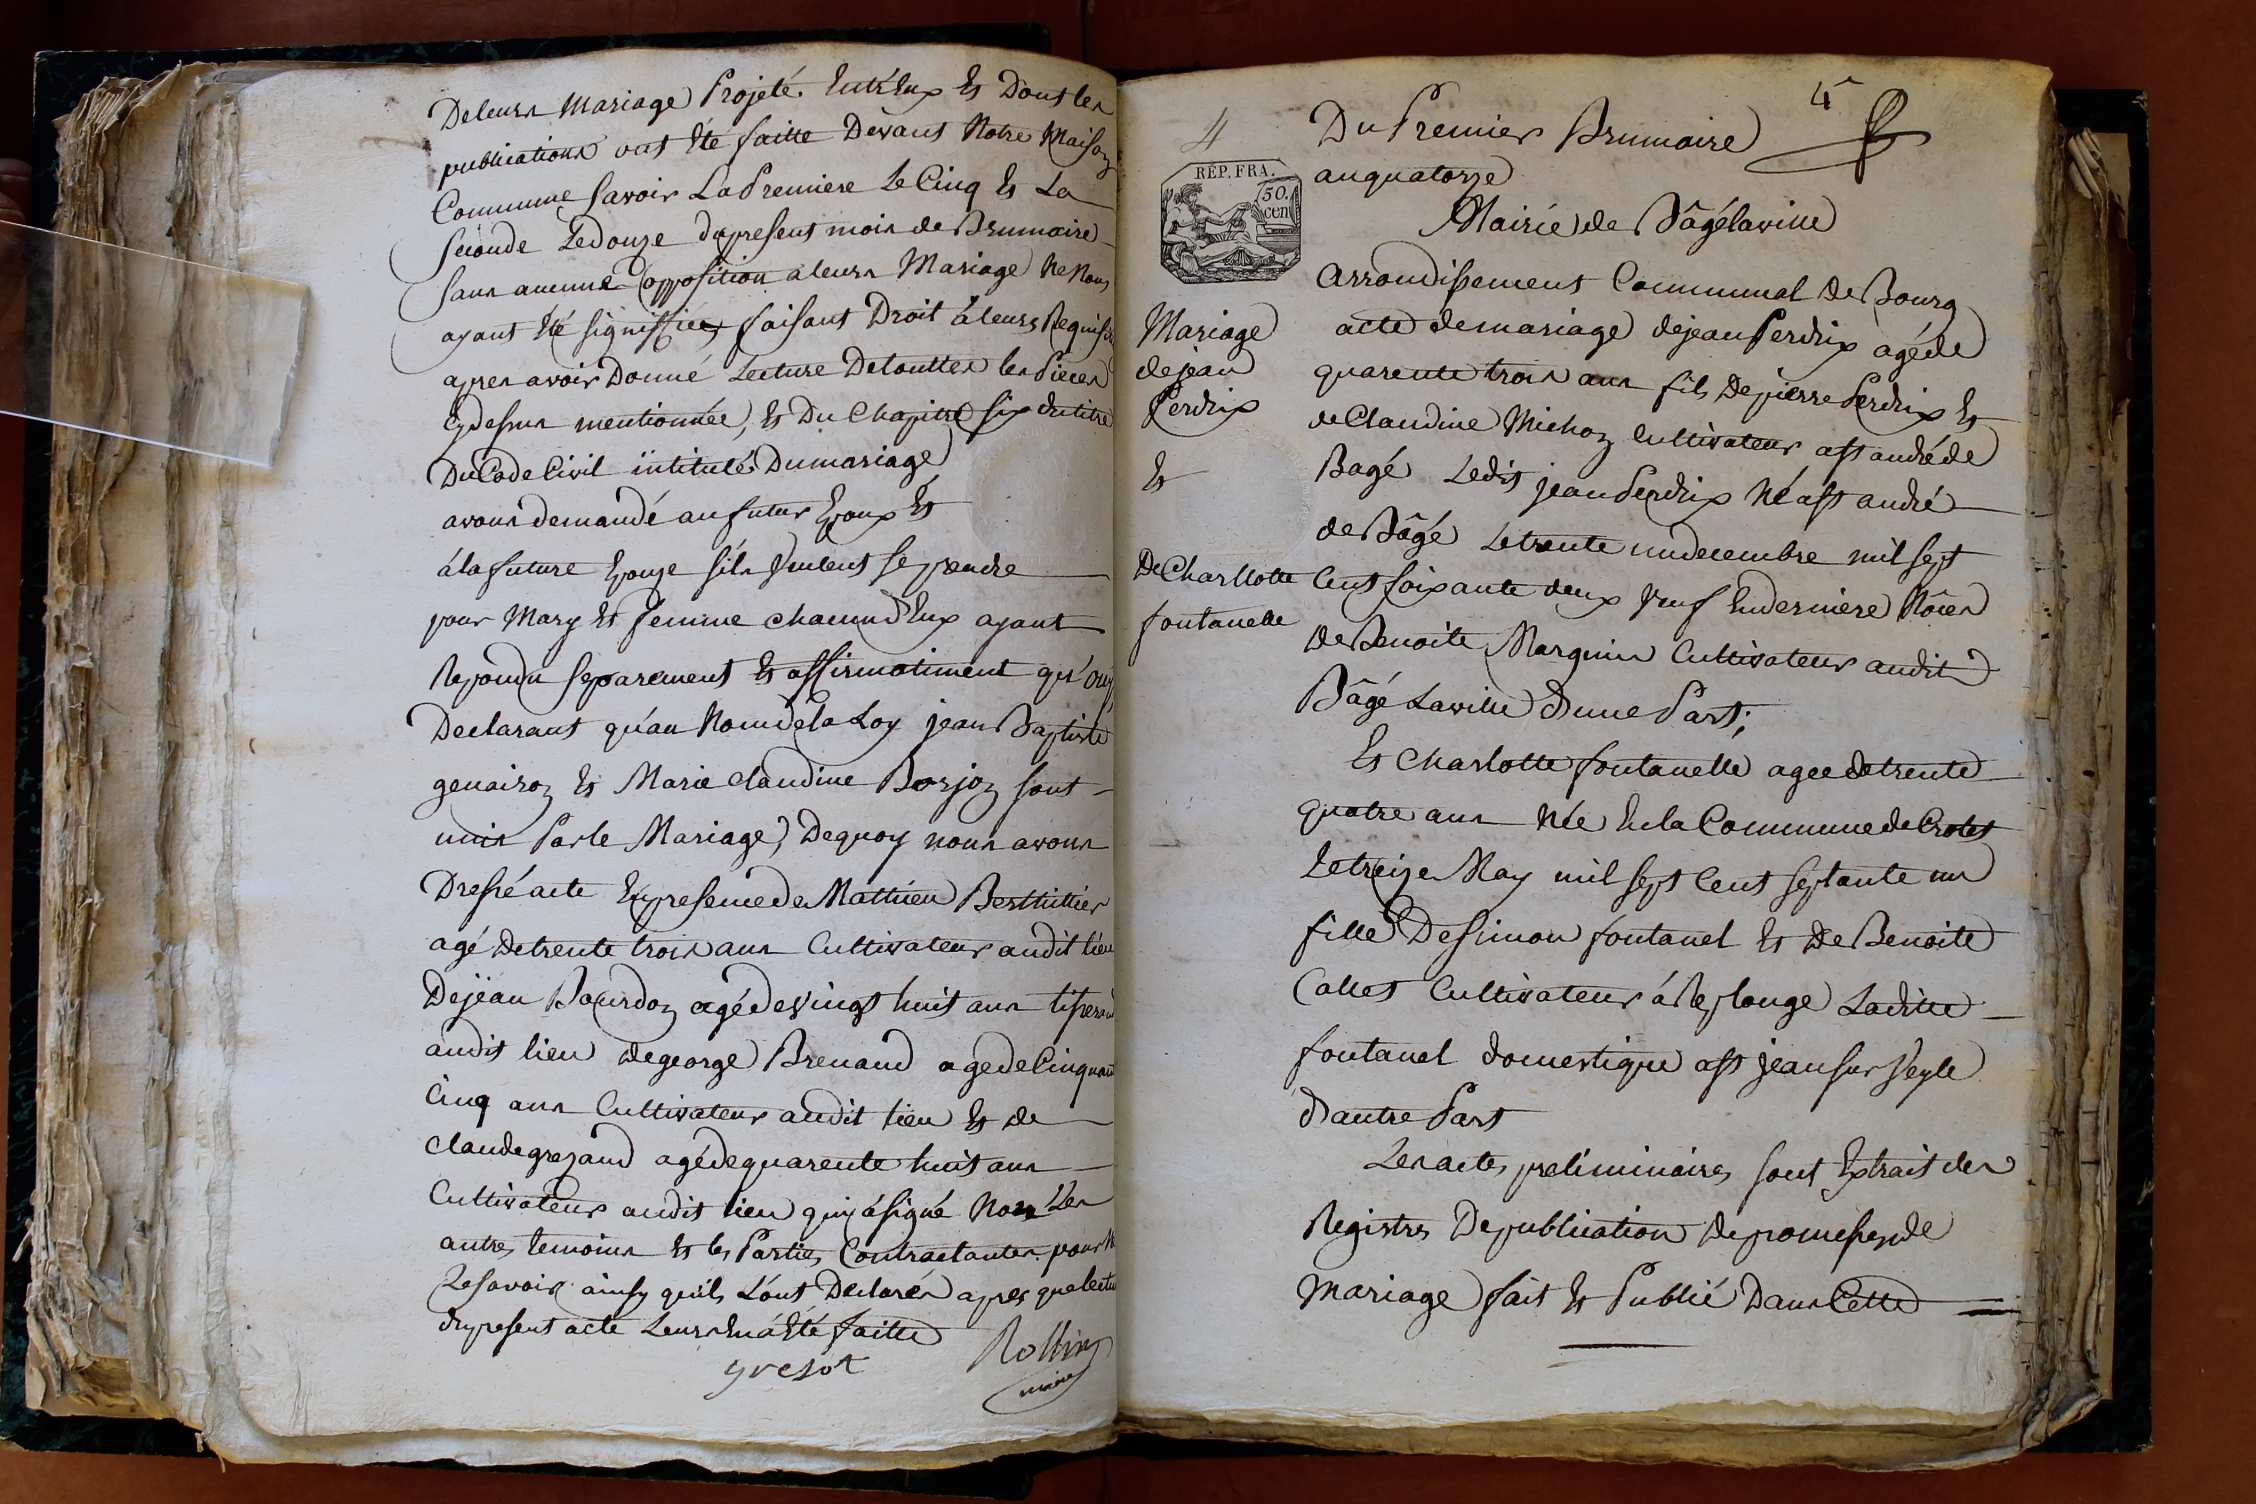 Deleurs Mariage Projeté Entr'Eux Et Dont les
publications ont Eté faitte Devant Notre Maison
Commune Savoir La Premiere Le Cinq Et La
seconde Le douze du present mois de Brumaire
sans aucune opposition a leurs Mariage Ne Nous
ayant Eté signiffiée, faisant Droit á leurs
apres avoir Donné Lecture De touttes les Pieces
Cy dessus mentionnée, Et Du Chapitre six du titre
Du Code Civil intitulé Du mariage
avons demandé au futur Epoux Et
á la future Epouze s'ils veulent se prendre
pour Mary Et femme chacun d'Eux ayant
Repondu separement Et affirmatiment qu'ouy
Declarant qu'au Nom de la Loy jean Baptiste
genairon Et Marie Claudine Borjon sont
unis Par le Mariage, De quoy nous avons
Dressé acte En presence de Mathieu Berthillier
agé de trente trois ans Cultivateur audit lieu
De jean Bourdon agé de Vingt huit ans
audit lieu de george Brenaud agé de Cinquante
Cinq ans Cultivateur audit lieu Et de
Claude grezaud agé de quarente huit ans
Cultivateur audit lieu qui á signé Non Les
autres temoins Et les Parties Contractantes pour Ne
Le savoir ainsy qu'ils L'ont Declarés apres que lecture
du present acte Leurs En á Eté faitte
grezot
Rollin
maire
4
4
Du Premier Brumaire
an quatorze
Mairie de Bâgé la ville
REP. FRA.
50.
cen
Arrondissement Communal de Bourg
Mariage
de jean
Perdrix
Et
De Charllotte
fontanelle
acte de mariage de jean Perdrix agé de
quarente trois ans fils De pierre Perdrix Et
de Claudine Michoz Cultivateur a st andré de
Bagé Ledit jean Perdrix Né a st andré
de Bâgé Le trente un decembre mil sept
Cent soixante deux Veuf En derniere Nôces
De Benoite Marguin Cultivateur audit
Bâgé Laville D'une Part;
Et Charlotte fontanelle agee de trente
quatre ans Née En la Commune de Crotet
Le treize May mil sept Cent septante un
fille De simon fontanel Et De Benoite
Callet Cultivateur á Replonge Laditte
fontanel domestique a st jean sur Veyle
D'autre Part
Les actes preliminaires sont Extrait des
Registres De publication de promesses de
Mariage fait Et Publié Dans Cette